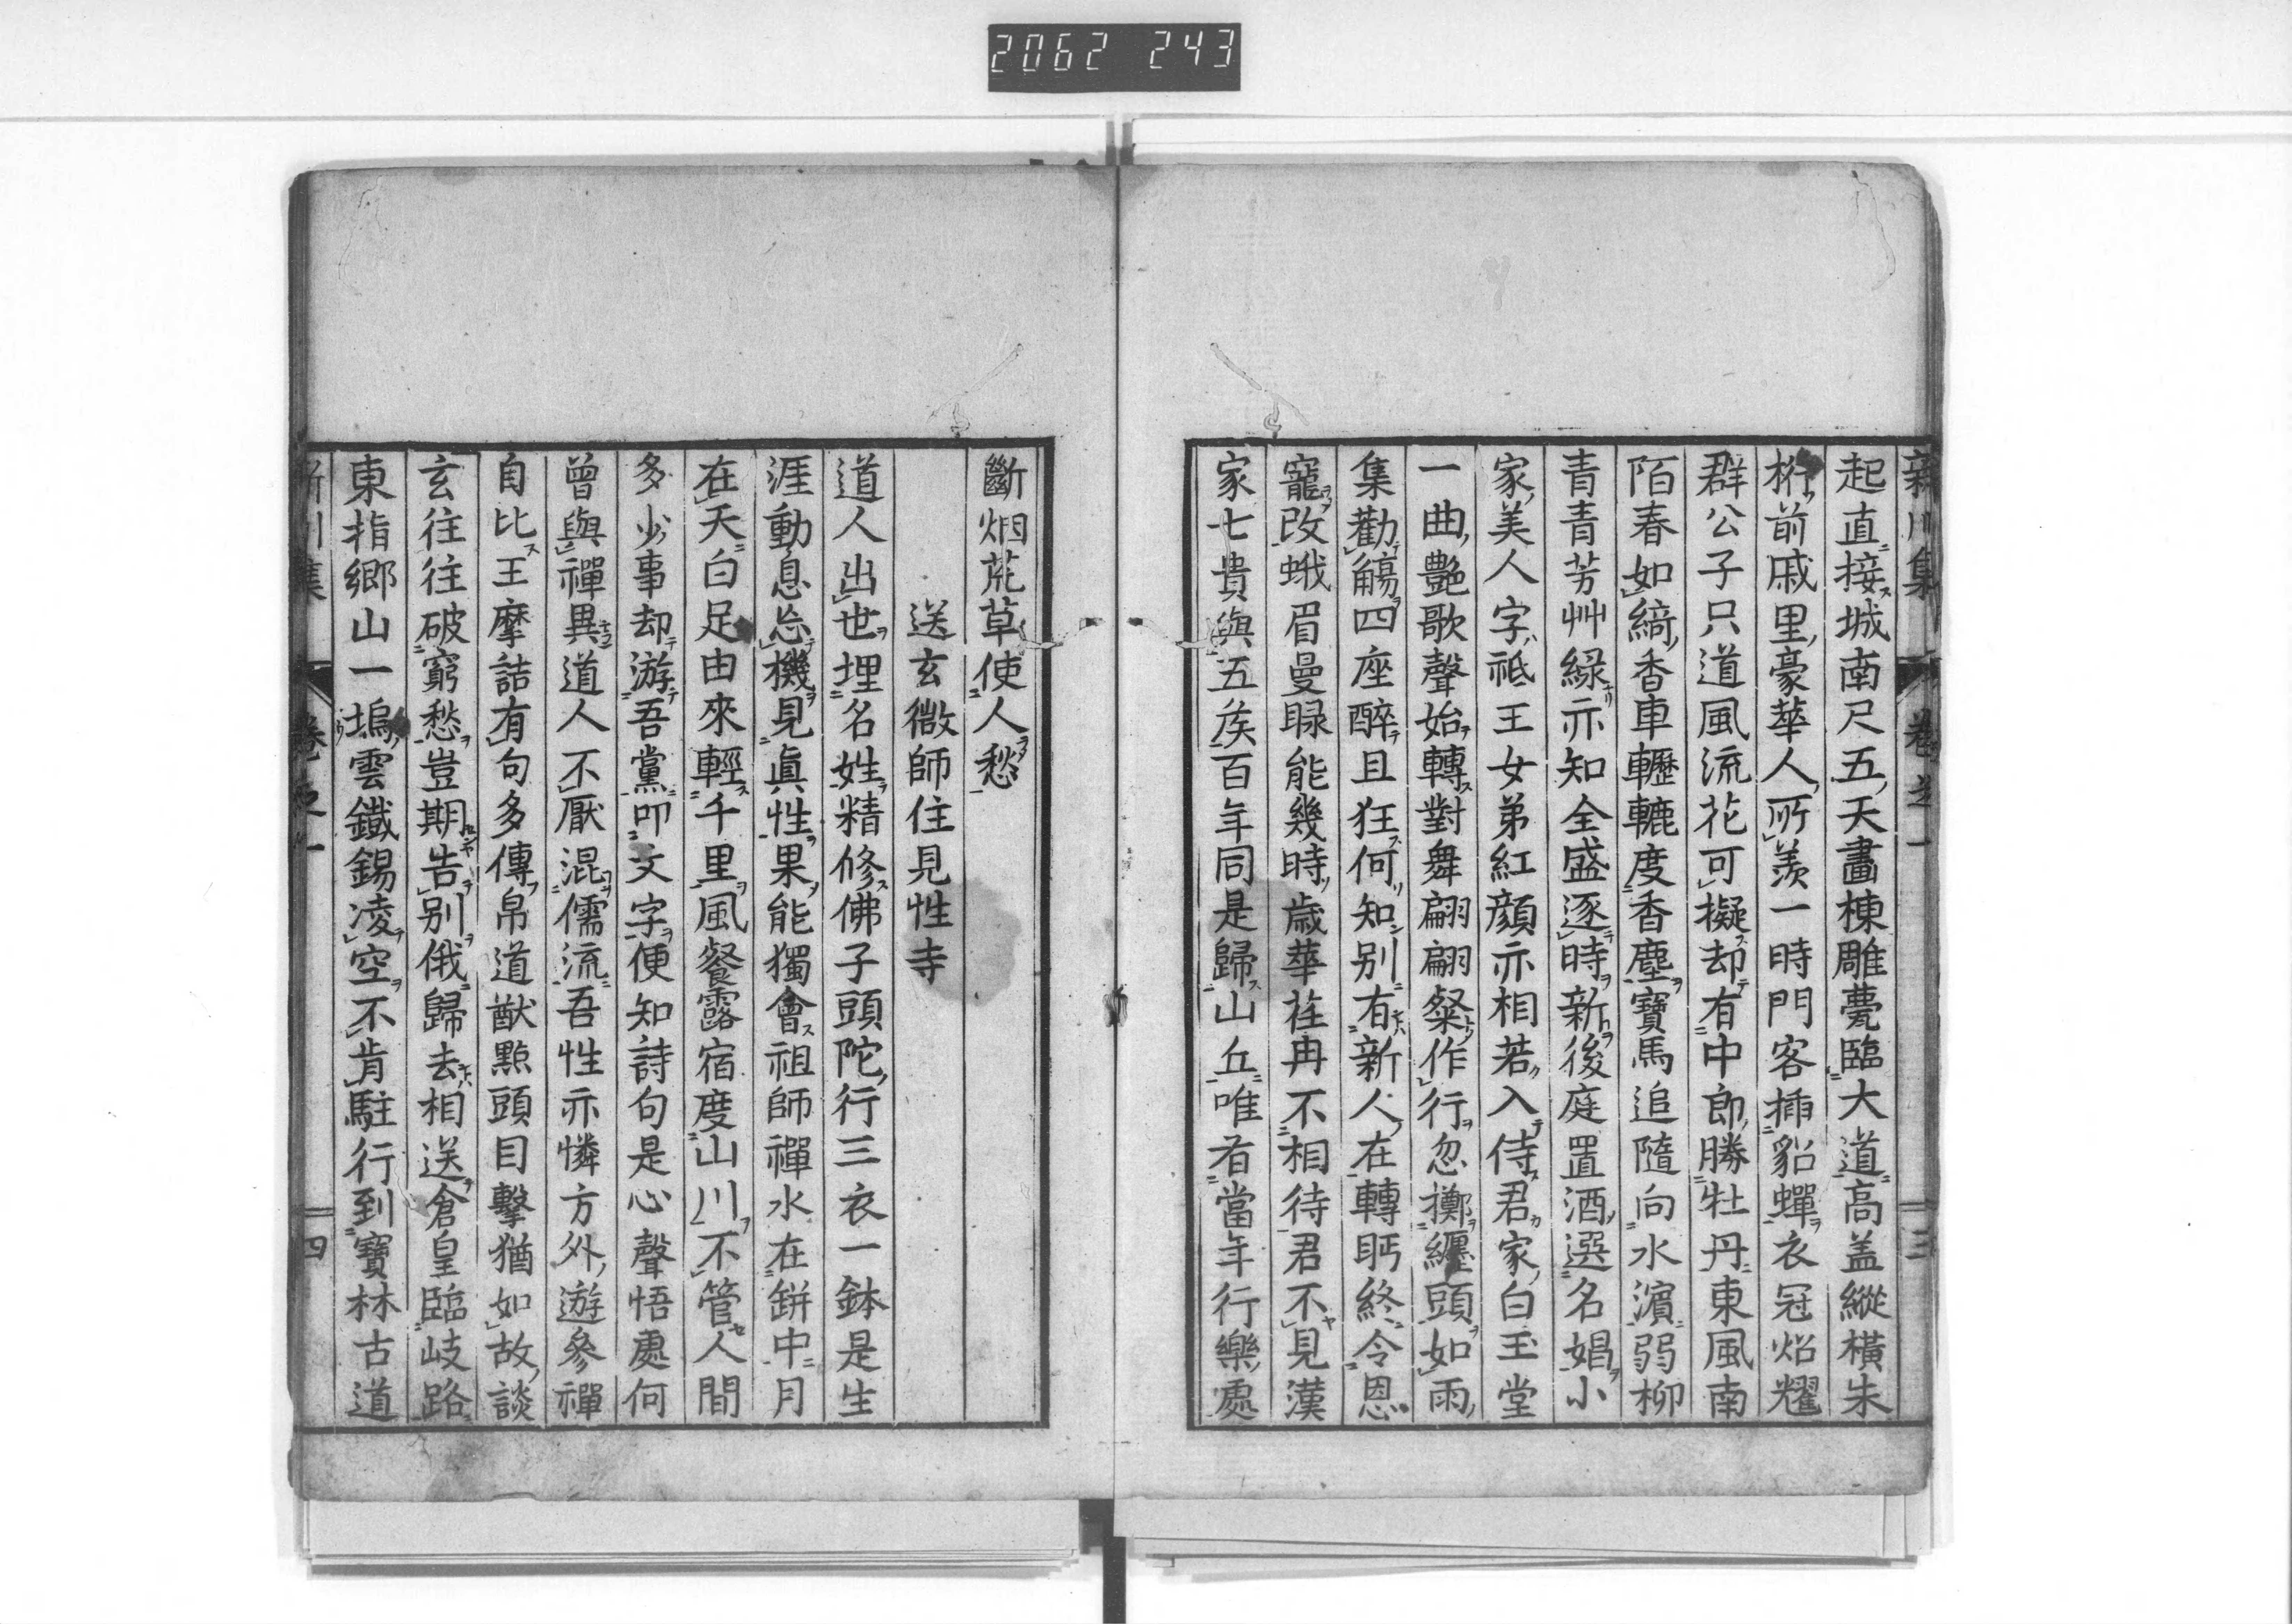 2062 243
新川集 卷之一 三
起直接城南尺五天畫棟雕甍臨大道高盖縱橫朱
桁前戚里豪華人所羨一時門客揷貂蟬衣冠炤耀
群公子只道風流花可擬却有中郎勝牡丹東風南
陌春如綺香車轣轆度香塵寶馬追隨向水濵弱柳
青青芳艸緑亦知全盛逐時新後庭置酒選名娼小
家美人字祗王女弟紅顔亦相若入侍君家白玉堂
一曲艶歌聲始轉對舞翩翩粲作行忽擲纒頭如雨
集勸觴四座醉且狂何知别有新人在轉眄終令恩
寵改蛾眉曼睩能幾時歳華荏冉不相待君不見漢
家七貴與五矦百年同是歸山丘唯看當年行樂處
斷烟荒草使人愁
送玄微師住見性寺
道人出世埋名姓精修佛子頭陀行三衣一鉢是生
涯動息忘機見眞性果能獨會祖師禪水在缾中月
在天白足由來輕千里風餐露宿度山川不管人間
多少事却游吾黨叩文字便知詩句是心聲悟處何
曾與禪異道人不厭混儒流吾性亦憐方外遊參禪
自比王摩詰有句多傳帛道猷點頭目擊猶如故談
玄往往破窮愁豈期告别俄歸去相送倉皇臨岐路
東指鄉山一塢雲鐵錫凌空不肯駐行到寶林古道
新川集 卷之一 四